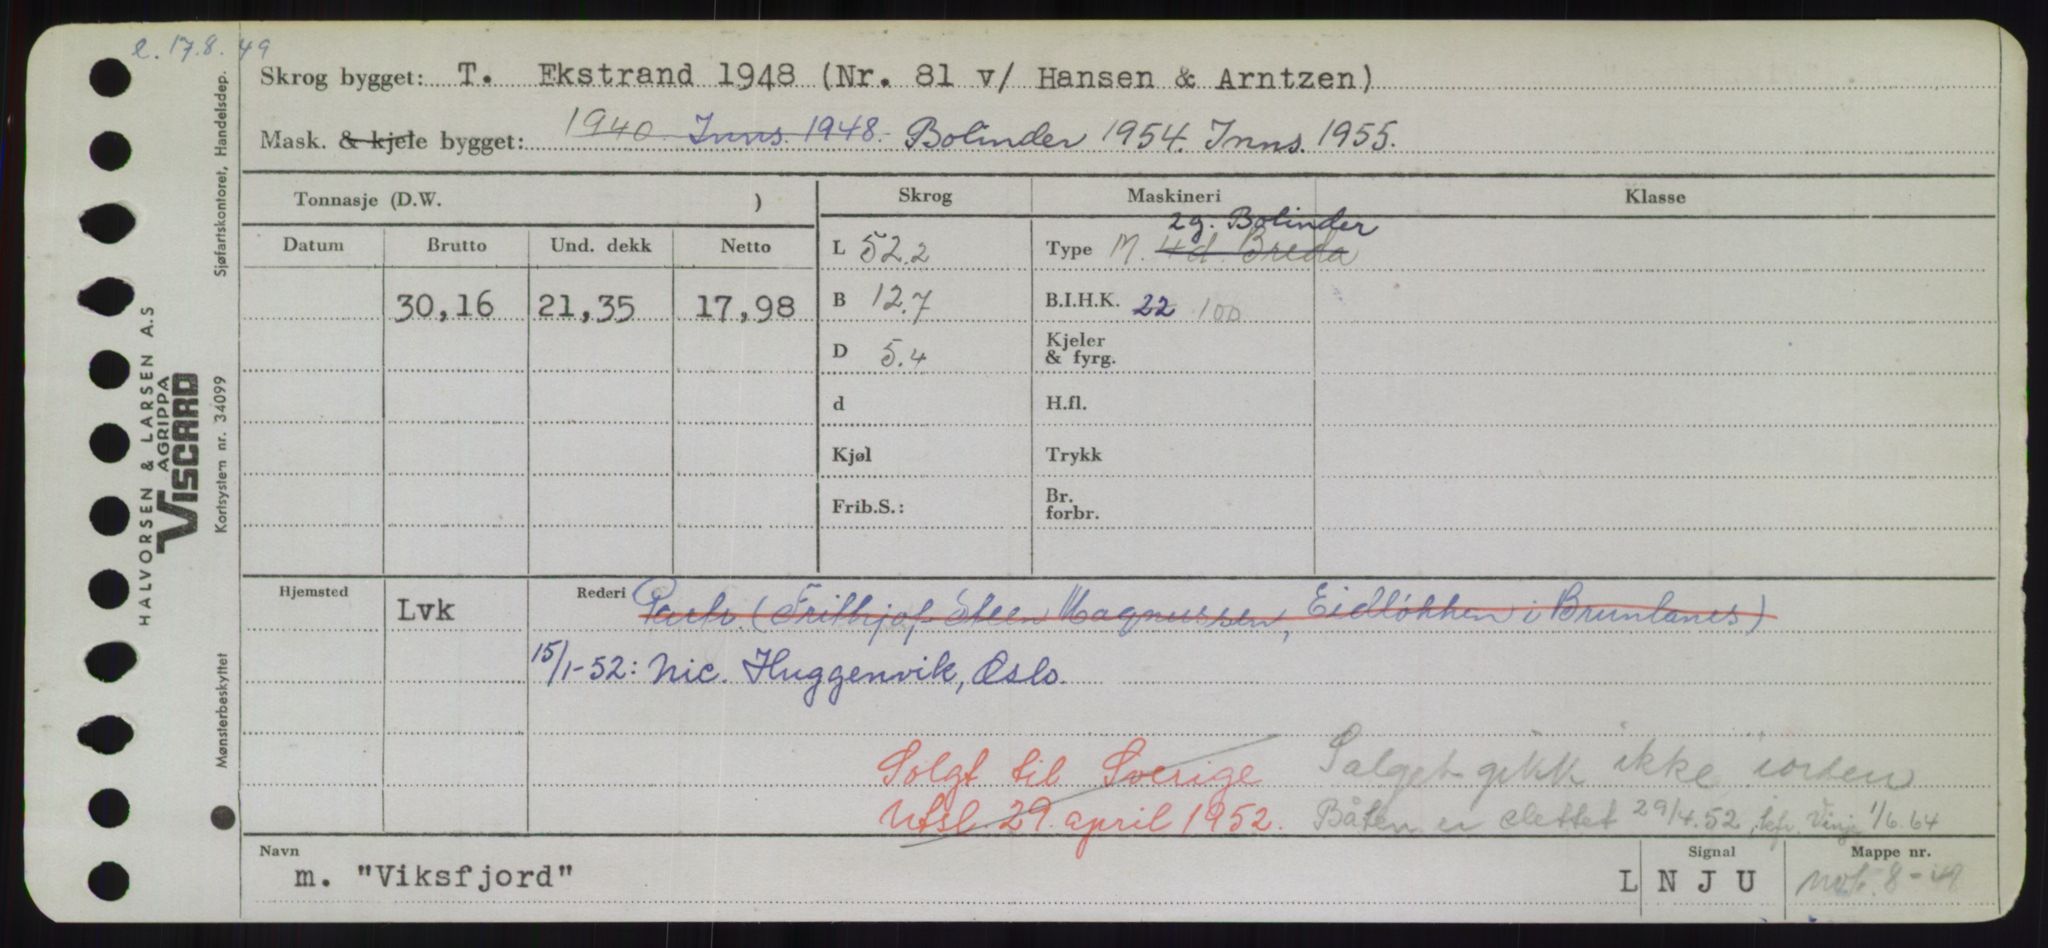 e. 17.8.49
Skrog bygget: T. Ekstrand 1948 (Nr. 81 v/ Hansen & Arntzen)
Mask. & kjele bygget: 1940. Inns. 1948. Bolinder 1954. Inns. 1955.
Tonnasje (D.W. )
Skrog
Maskineri
Klasse
Datum Brutto Und. dekk Netto
30,16 21,35 17,98
L 52.2
B 12.7
D 5.4
d
Kjøl
Frib.S.:
2g. Bolinder
Type M. 4d. Breda
B.I.H.K. 22 100
Kjeler
& fyrg.
H.fl.
Trykk
Br.
forbr.
Hjemsted Lvk
Rederi Partr. (Frithjof Steen Magnussen, Eidløkken i Brunlanes)
15/1-52: Nic. Huggenvik, Oslo.
Solgt til Sverige Salget gikk ikke iorden
Utsl. 29. april 1952. Båten er slettet 29/4.52, kfr. Vinje 1/6.64
Navn
m. "Viksfjord"
Signal
L N J U
Mappe nr.
not. 8-49
HALVORSEN & LARSEN A.S
AGRIPPA
VISCARD
Sjøfartskontoret, Handelsdep.
Kortsystem nr. 34099
Mønsterbeskyttet